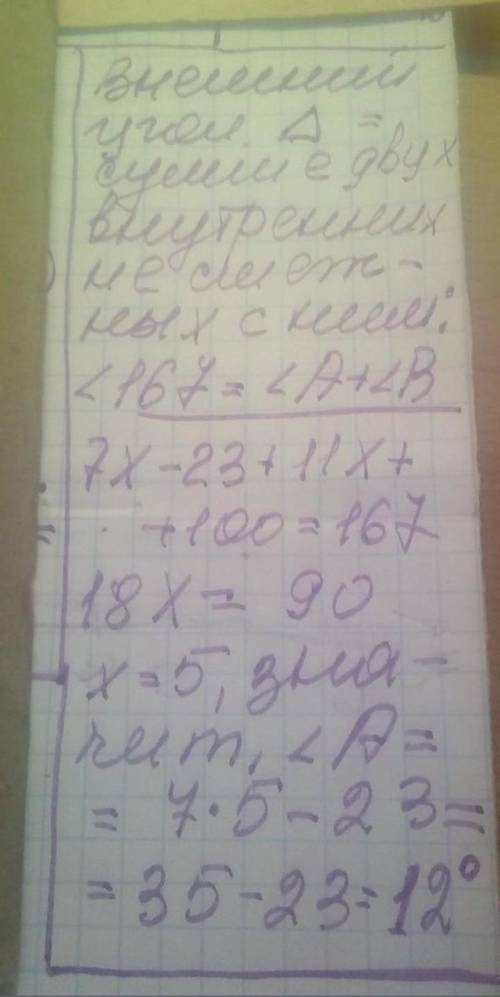 внешний
угол Δ =
сумме двух
внутренних
не смеж-
ных с ним:
∠167 = ∠A+∠B
7x-23+11x+
+100=167
18x = 90
x=5, зна-
чит, ∠A=
= 7·5-23=
=35-23=12°